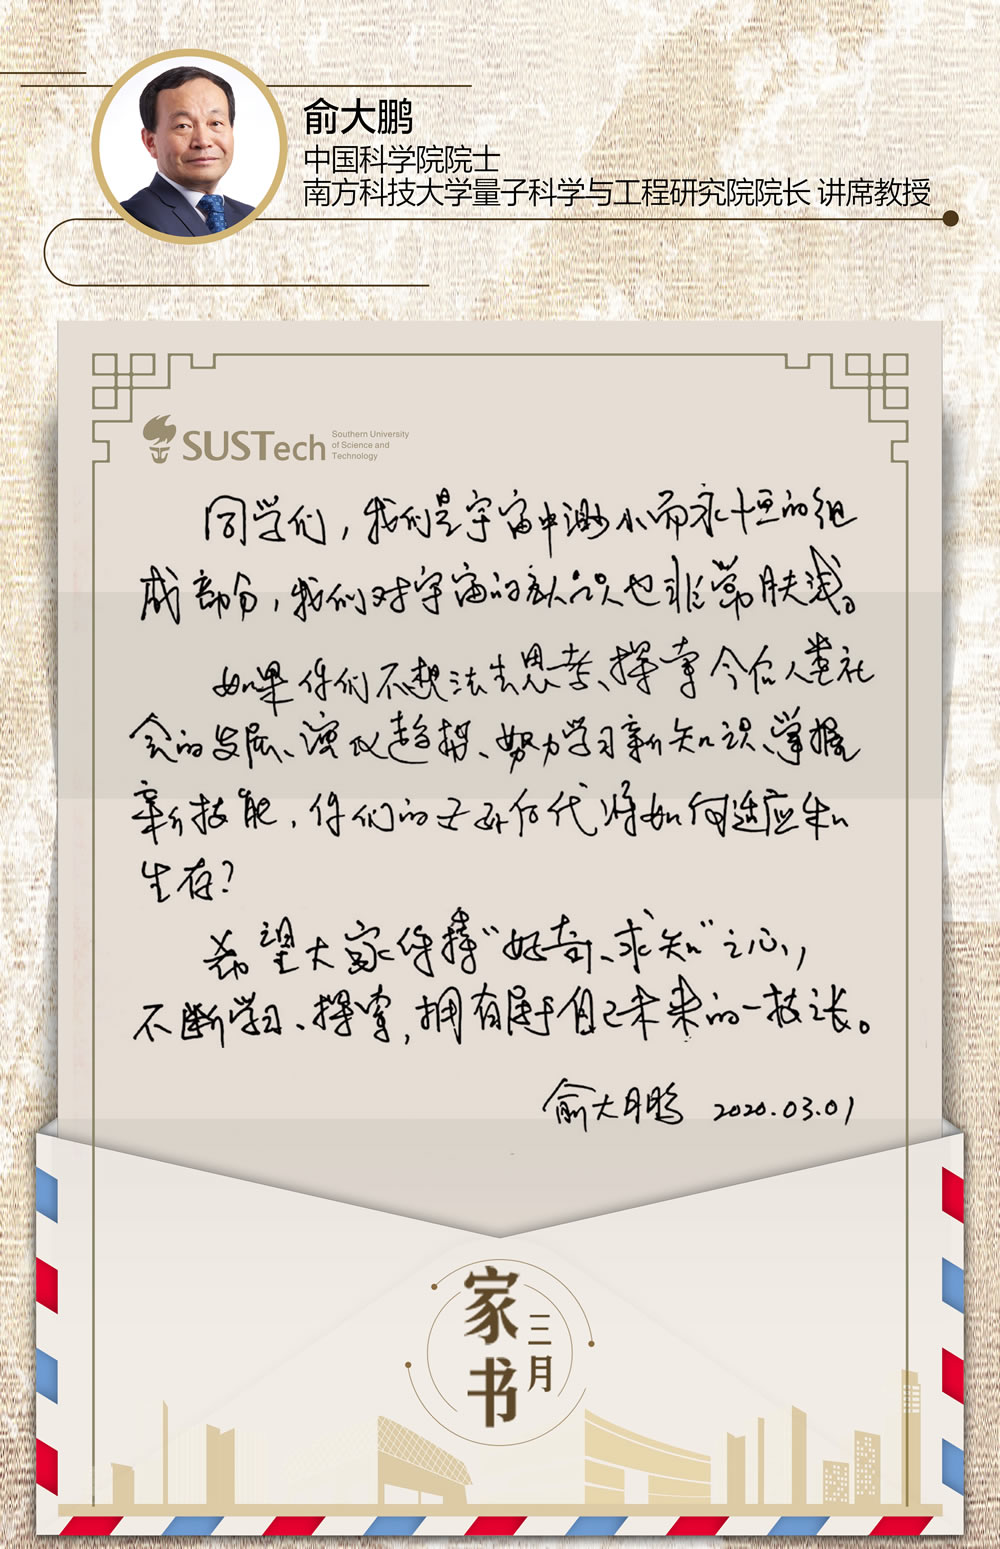 俞大鹏
中国科学院院士
南方科技大学量子科学与工程研究院院长 讲席教授
SUSTech
Southern University
of Science and
Technology
同学们,我们是宇宙中渺小而永恒的组
成部分,我们对宇宙的认识也非常肤浅。
如果你们不想法去思考、探索今后人类社
会的发展、演化趋势、努力学习新知识、掌握
新技能,你们的子孙后代将如何适应和
生存?
希望大家保持“好奇、求知”之心,
不断学习、探索,拥有属于自己未来的一技之长。
俞大鹏 2020.03.01
家书
三月